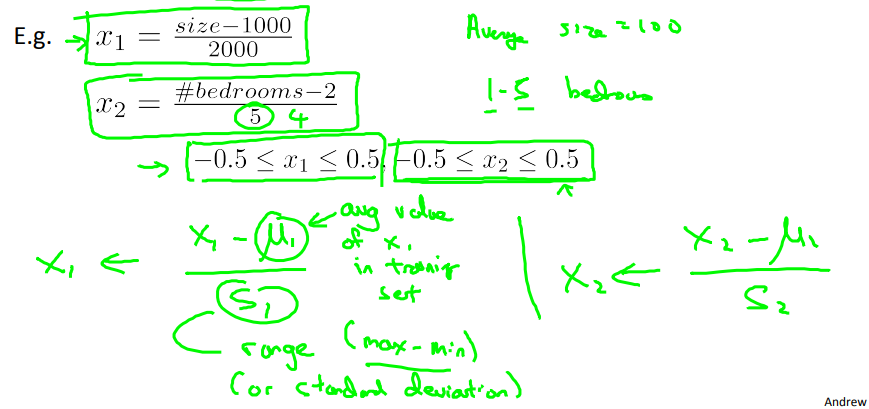 E.g. → x₁ = (size−1000)/2000
Average size = 100
x₂ = (#bedrooms−2)/5 4
1-5 bedrooms
→ −0.5 ≤ x₁ ≤ 0.5, −0.5 ≤ x₂ ≤ 0.5
x₁ ← (x₁ − μ₁)/s₁
avg value
of x₁
in training
set
x₂ ← (x₂ − μ₂)/s₂
range (max-min)
(or standard deviation)
Andrew